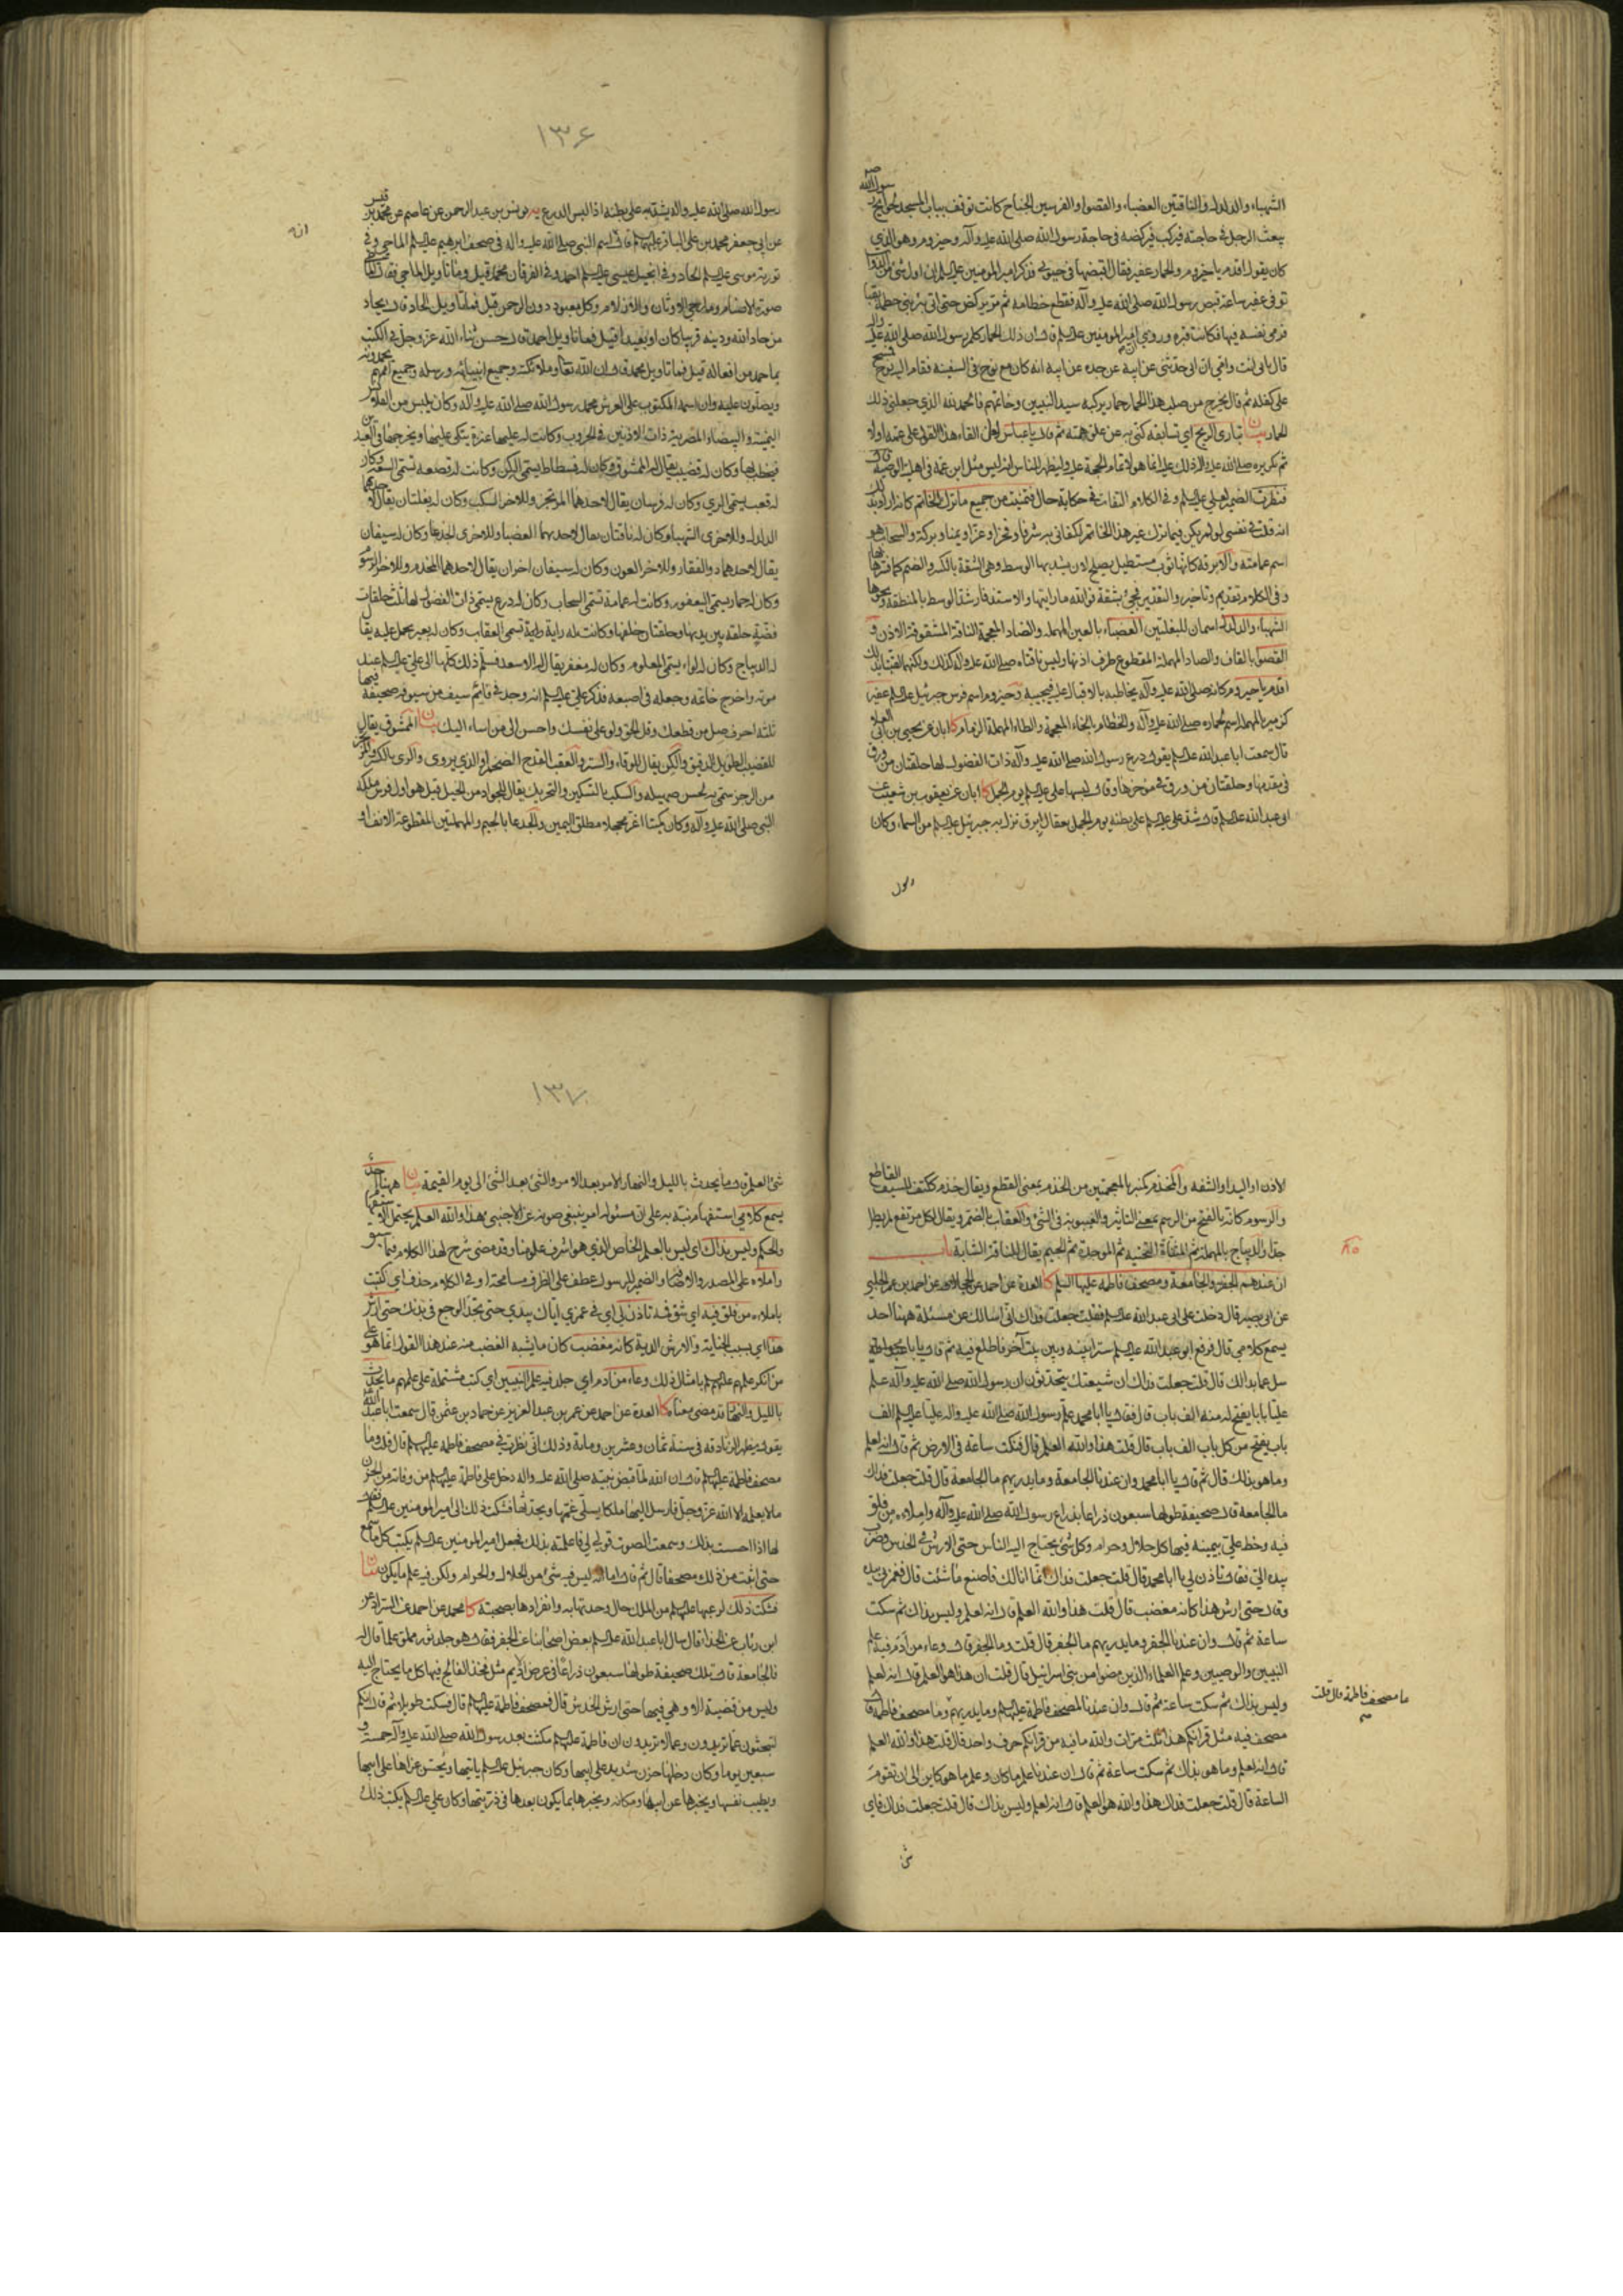 الشهباء والدلدل والناقتين العضباء والقصوا والفرسين الجناح كانت توقف بباب المسجد لحوايج رسول الله ص
يبعث الرجل في حاجته فيركب فيركضه في حاجة رسول الله صلى الله عليه وآله وحيزوم وهو الذي
كان يقول اقدم يا حيزوم والحمار عفير فقال اقبضها في حيوتي فذكر امير المومنين عليه السلم ان اول شئ من الدواب
توفي عفير ساعة قبض رسول الله صلى الله عليه وآله فقطع خطامه ثم مر يركض حتى اتى بئر بني خطمة بقبا
فرمى نفسه فيها فكانت قبره وروي ان امير المومنين عليه السلم قال ان ذلك الحمار كلم رسول الله صلى الله عليه وآله
قال بابي انت وامي ان ابي حدثني عن ابيه عن جده عن ابيه انه كان مع نوح في السفينة فقام اليه نوح فمسح
على كفله ثم قال يخرج من صلب هذا الحمار حمار يركبه سيد النبيين وخاتمهم فالحمد لله الذي جعلني ذلك
الحمار بيان تباري الريح اي تسابقه كنى به عن علو همته ثم قال يا عباس لعل القاء هذا القول على عمه اولا
ثم تكريره صلى الله عليه وآله ذلك عليه انما هو لاتمام الحجة عليه وليظهر للناس انه ليس مثل ابن عمه في اهلية الوصية قال
فنظرت الضمير لعلي عليه السلم وفي الكلام التفات في حكاية حال فتمنيت من جميع ما ترك الخاتم كانه اراد بذلك
انه قلت في نفسي لو لم يكن فيما ترك غير هذا الخاتم لكفاني به شرفا وفخرا وعزا ويمنا وبركة والسحاب هو
اسم عمامته والابرقة كانها ثوب مستطيل يصلح لان يشد بها الوسط وهي الشقة بالكسر والضم كما فسرها بها
وفي الكلام تقديم وتاخير والتقدير فجئ بشقة فوالله ما رايتها والاستدفار شد الوسط بالمنطقة ونحوها
الشهباء والدلدل اسمان للبغلتين العضباء بالعين المهملة والضاد المعجمة الناقة المشقوقة الاذن و
القصوى بالقاف والصاد المهملة المقطوع طرف اذنها وليس ناقتاه صلى الله عليه وآله كذلك ولكنهما لقبتا بذلك
اقدم يا حيزوم كانه صلى الله عليه وآله يخاطبه بالاقبال عليه فيجيبه وحيزوم اسم فرس جبرئيل عليه السلم عفير
كزبير بالمهملة اسم لحماره صلى الله عليه وآله والخطام بالخاء المعجمة والطاء المهملة الزمام كا ابان عن يحيى بن ابي العلاء
قال سمعت ابا عبد الله عليه السلم يقول درع رسول الله صلى الله عليه وآله ذات الفضول لها حلقتان من ورق
في مقدمها وحلقتان من ورق في موخرها وقال لبسها علي عليه السلم يوم الجمل كا ابان عن يعقوب بن شعيب عن
ابي عبد الله عليه السلم قال شد علي عليه السلم على بطنه يوم الجمل بعقال ابرق نزل به جبرئيل عليه السلم من السماء وكان
رسول
١٣٦
رسول الله صلى الله عليه وآله يشد به على بطنه اذا لبس الدرع يه يونس بن عبد الرحمن عن عاصم عن محمد بن قيس
عن ابي جعفر محمد بن علي الباقر عليهما السلم قال اسم النبي صلى الله عليه وآله في صحف ابرهيم عليه السلم الماحي وفي
انه
تورية موسى عليه السلم الحاد وفي انجيل عيسى عليه السلم احمد وفي الفرقان محمد قيل وما تاويل الماحي فقال الماحي
صورة الاصنام وماحي الاوثان والازلام وكل معبود دون الرحمن قيل فما تاويل الحاد قال يحاد
من حاد الله ودينه قريبا كان او بعيدا قيل فما تاويل احمد قال حسن ثناء الله عز وجل في الكتب
بما حمد من افعاله قيل فما تاويل محمد قال ان الله تعالى وملائكته وجميع انبيائه ورسله وجميع اممهم يحمدونه
ويصلون عليه وان اسمه المكتوب على العرش محمد رسول الله صلى الله عليه وآله وكان يلبس من القلانس
اليمنية والبيضاء المضربة ذات الاذنين في الحروب وكانت له عنزة يتكي عليها ويخرجها في العيدين
فيخطب بها وكان له قضيب يقال له الممشوق وكان له فسطاط يسمى الكن وكانت له قصعة تسمى السعة وكان
له قعب يسمى الري وكان له فرسان يقال لاحدهما المرتجز وللاخر السكب وكان له بغلتان يقال لاحديهما
الدلدل وللاخرى الشهباء وكان له ناقتان يقال لاحديهما العضباء وللاخرى الجذعا وكان له سيفان
يقال لاحدهما ذو الفقار وللاخر العون وكان له سيفان اخران يقال لاحدهما المخذم وللاخر الرسوم
وكان له حمار يسمى اليعفور وكانت له عمامة تسمى السحاب وكان له درع يسمى ذات الفضول لها ثلث حلقات
فضة حلقة بين يديها وحلقتان خلفها وكانت له راية تسمى العقاب وكان له بعير يحمل عليه يقال
له الديباج وكان له لواء يسمى المعلوم وكان له مغفر يقال له الاسعد فسلم ذلك كلها الى علي عليه السلم عند
موته واخرج خاتمه وجعله في اصبعه فذكر علي عليه السلم انه وجد في قايم سيف من سيوفه صحيفة فيها
ثلثة احرف صل من قطعك وقل الحق ولو على نفسك واحسن الى من اساء اليك بيان الممشوق يقال
للقضيب الطويل الدقيق والكن يقال للوقاء والستر والعقب القدح الضخم او الذي يروى والري بالكسر والمرتجز
من الرجز سمي به لحسن صهيله والسكب بالتسكين والتحريك يقال للجواد من الخيل قيل هو اول فرس ملكه
النبي صلى الله عليه وآله وكان كميتا اغر محجلا مطلق اليمين والجدعا بالجيم والمهملتين المقطوعة الانف او
الاذن او اليد او الشفه والمخذم كمنبر بالمعجمتين من الخذم بمعنى القطع ويقال خذم ككتف للسيف القاطع
والرسوم كانه بالفتح من الرسم بمعنى التاثير والغيبوبة في الشئ والعقاب بالضم ويقال لكل مرتفع لم يطل
جدا والديباج بالمهملة ثم المثناة التحتية ثم الموحدة ثم الجيم يقال للناقة الشابة باب
ان عندهم الجفر والجامعة ومصحف فاطمة عليها السلم كا العدة عن احمد عن الحجال عن احمد بن عمر الحلبي
عن ابي بصير قال دخلت على ابي عبد الله عليه السلم فقلت جعلت فداك اني اسالك عن مسئلة ههنا احد
يسمع كلامي قال فرفع ابو عبد الله عليه السلم سترا بينه وبين بيت آخر فاطلع فيه ثم قال يا ابا محمد
سل عما بدا لك قال قلت جعلت فداك ان شيعتك يتحدثون ان رسول الله صلى الله عليه وآله علم
عليا بابا يفتح له منه الف باب قال فقال يا ابا محمد علم رسول الله صلى الله عليه وآله عليا عليه السلم الف
باب يفتح من كل باب الف باب قال قلت هذا والله العلم قال فنكت ساعة في الارض ثم قال انه لعلم
وما هو بذاك قال ثم قال يا ابا محمد وان عندنا الجامعة وما يدريهم ما الجامعة قال قلت جعلت فداك
ما الجامعة قال صحيفة طولها سبعون ذراعا بذراع رسول الله صلى الله عليه وآله واملاءه من فلق
فيه وخط علي بيمينه فيها كل حلال وحرام وكل شئ يحتاج اليه الناس حتى الارش في الخدش وضرب
بيده الي فقال تاذن لي يا ابا محمد قال قلت جعلت فداك انما انا لك فاصنع ما شئت قال فغمزني بيده
وقال حتى ارش هذا كانه مغضب قال قلت هذا والله العلم قال انه لعلم وليس بذاك ثم سكت
ساعة ثم قال وان عندنا الجفر وما يدريهم ما الجفر قال قلت وما الجفر قال وعاء من ادم فيه علم
النبيين والوصيين وعلم العلماء الذين مضوا من بني اسرائيل قال قلت ان هذا هو العلم قال انه لعلم
وليس بذاك ثم سكت ساعة ثم قال وان عندنا لمصحف فاطمة عليها السلم وما يدريهم وما مصحف فاطمة قال
ما مصحف فاطمة قال قلت
مصحف فيه مثل قرانكم هذا ثلث مرات والله ما فيه من قرانكم حرف واحد قال قلت هذا والله العلم
قال انه لعلم وما هو بذاك ثم سكت ساعة ثم قال ان عندنا علم ما كان وعلم ما هو كاين الى ان تقوم
الساعة قال قلت جعلت فداك هذا والله هو العلم قال انه لعلم وليس بذاك قال قلت جعلت فداك فاي
شئ
١٣٧
شئ العلم قال ما يحدث بالليل والنهار الامر بعد الامر والشئ بعد الشئ الى يوم القيمة بيان ههنا احد
يسمع كلامي استفهام نبه به على ان مسئوله امر ينبغي صونه عن الاجنبي هذا والله العلم يحتمل الاستفهام
والحكم وليس بذاك اي ليس بالعلم الخاص الذي هو اشرف علومنا وقد مضى شرح لهذا الكلام فيما سبق
واملاءه على المصدر والاضافة والضمير للرسول عطف على الظرف مسامحة او في الكلام حذف اي كتبت
باملاءه من فلق فيه اي شق فمه تاذن لي اي في غمزي اياك بيدي حتى تجد الوجع في بدنك حتى ارش
هذا اي بسبب الجناية والارش الدية كانه مغضب كان ما يشبه الغضب منه عند هذا القول انما هو على
من انكر علمهم عليهم السلم بامثال ذلك وعاء من ادم اي جلد فيه علم النبيين اي كتب مشتملة على علمهم ما يحدث
بالليل والنهار قد مضى معناه كا العدة عن احمد عن عمر بن عبد العزيز عن حماد بن عثمن قال سمعت ابا عبد الله
يقول يظهر الزنادقة في سنة ثمان وعشرين ومائة وذلك اني نظرت في مصحف فاطمة عليها السلم قال قلت وما
مصحف فاطمة عليها السلم قال ان الله لما قبض نبيه صلى الله عليه وآله دخل على فاطمة عليها السلم من وفاته من الحزن
ما لا يعلمه الا الله عز وجل فارسل اليها ملكا يسلي غمها ويحدثها فشكت ذلك الى امير المومنين عليه السلم فقال
لها اذا احسست بذلك وسمعت الصوت قولي لي فاعلمته بذلك فجعل امير المومنين عليه السلم يكتب كل ما سمع
حتى اثبت من ذلك مصحفا قال ثم قال اما انه ليس فيه شئ من الحلال والحرام ولكن فيه علم ما يكون بيان
فشكت ذلك لرعبها عليها السلم من الملك حال وحدتها به وانفرادها بصحبته كا محمد عن احمد عن السراد عن
ابن رئاب عن الحذاء قال سال ابا عبد الله عليه السلم بعض اصحابنا عن الجفر فقال هو جلد ثور مملو علما قال له
فالجامعة قال تلك صحيفة طولها سبعون ذراعا في عرض الاديم مثل فخذ الفالج فيها كل ما يحتاج اليه
وليس من قضية الا وهي فيها حتى ارش الخدش قال فمصحف فاطمة عليها السلم قال فسكت طويلا ثم قال انكم
لتبحثون عما تريدون وعما لا تريدون ان فاطمة عليها السلم مكثت بعد رسول الله صلى الله عليه وآله خمسة و
سبعين يوما وكان دخلها حزن شديد على ابيها وكان جبرئيل عليه السلم ياتيها ويحسن عزاها على ابيها
ويطيب نفسها ويخبرها عن ابيها ومكانه ويخبرها بما يكون بعدها في ذريتها وكان علي عليه السلم يكتب ذلك